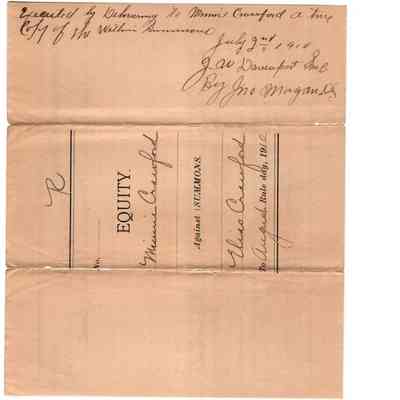 Executed by Delivering to Minnie Crawford a true
Copy of the Within Summons
July 2nd 1910
J W Davenport
By Jno
R
No.
EQUITY.
Minnie Crawford
Against } SUMMONS.
Eliza Crawford
To August Rule day, 1910